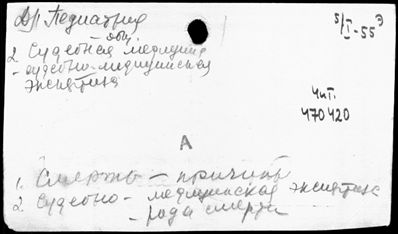 Др. Педиатрия
5/I-55 Э
- общ.
2. Судебная медицина
- судебно-медицинская
экспертиза
Чит.
470420
А
1. Смерть - причины
2. Судебно - медицинская экспертиза
- рода смерти